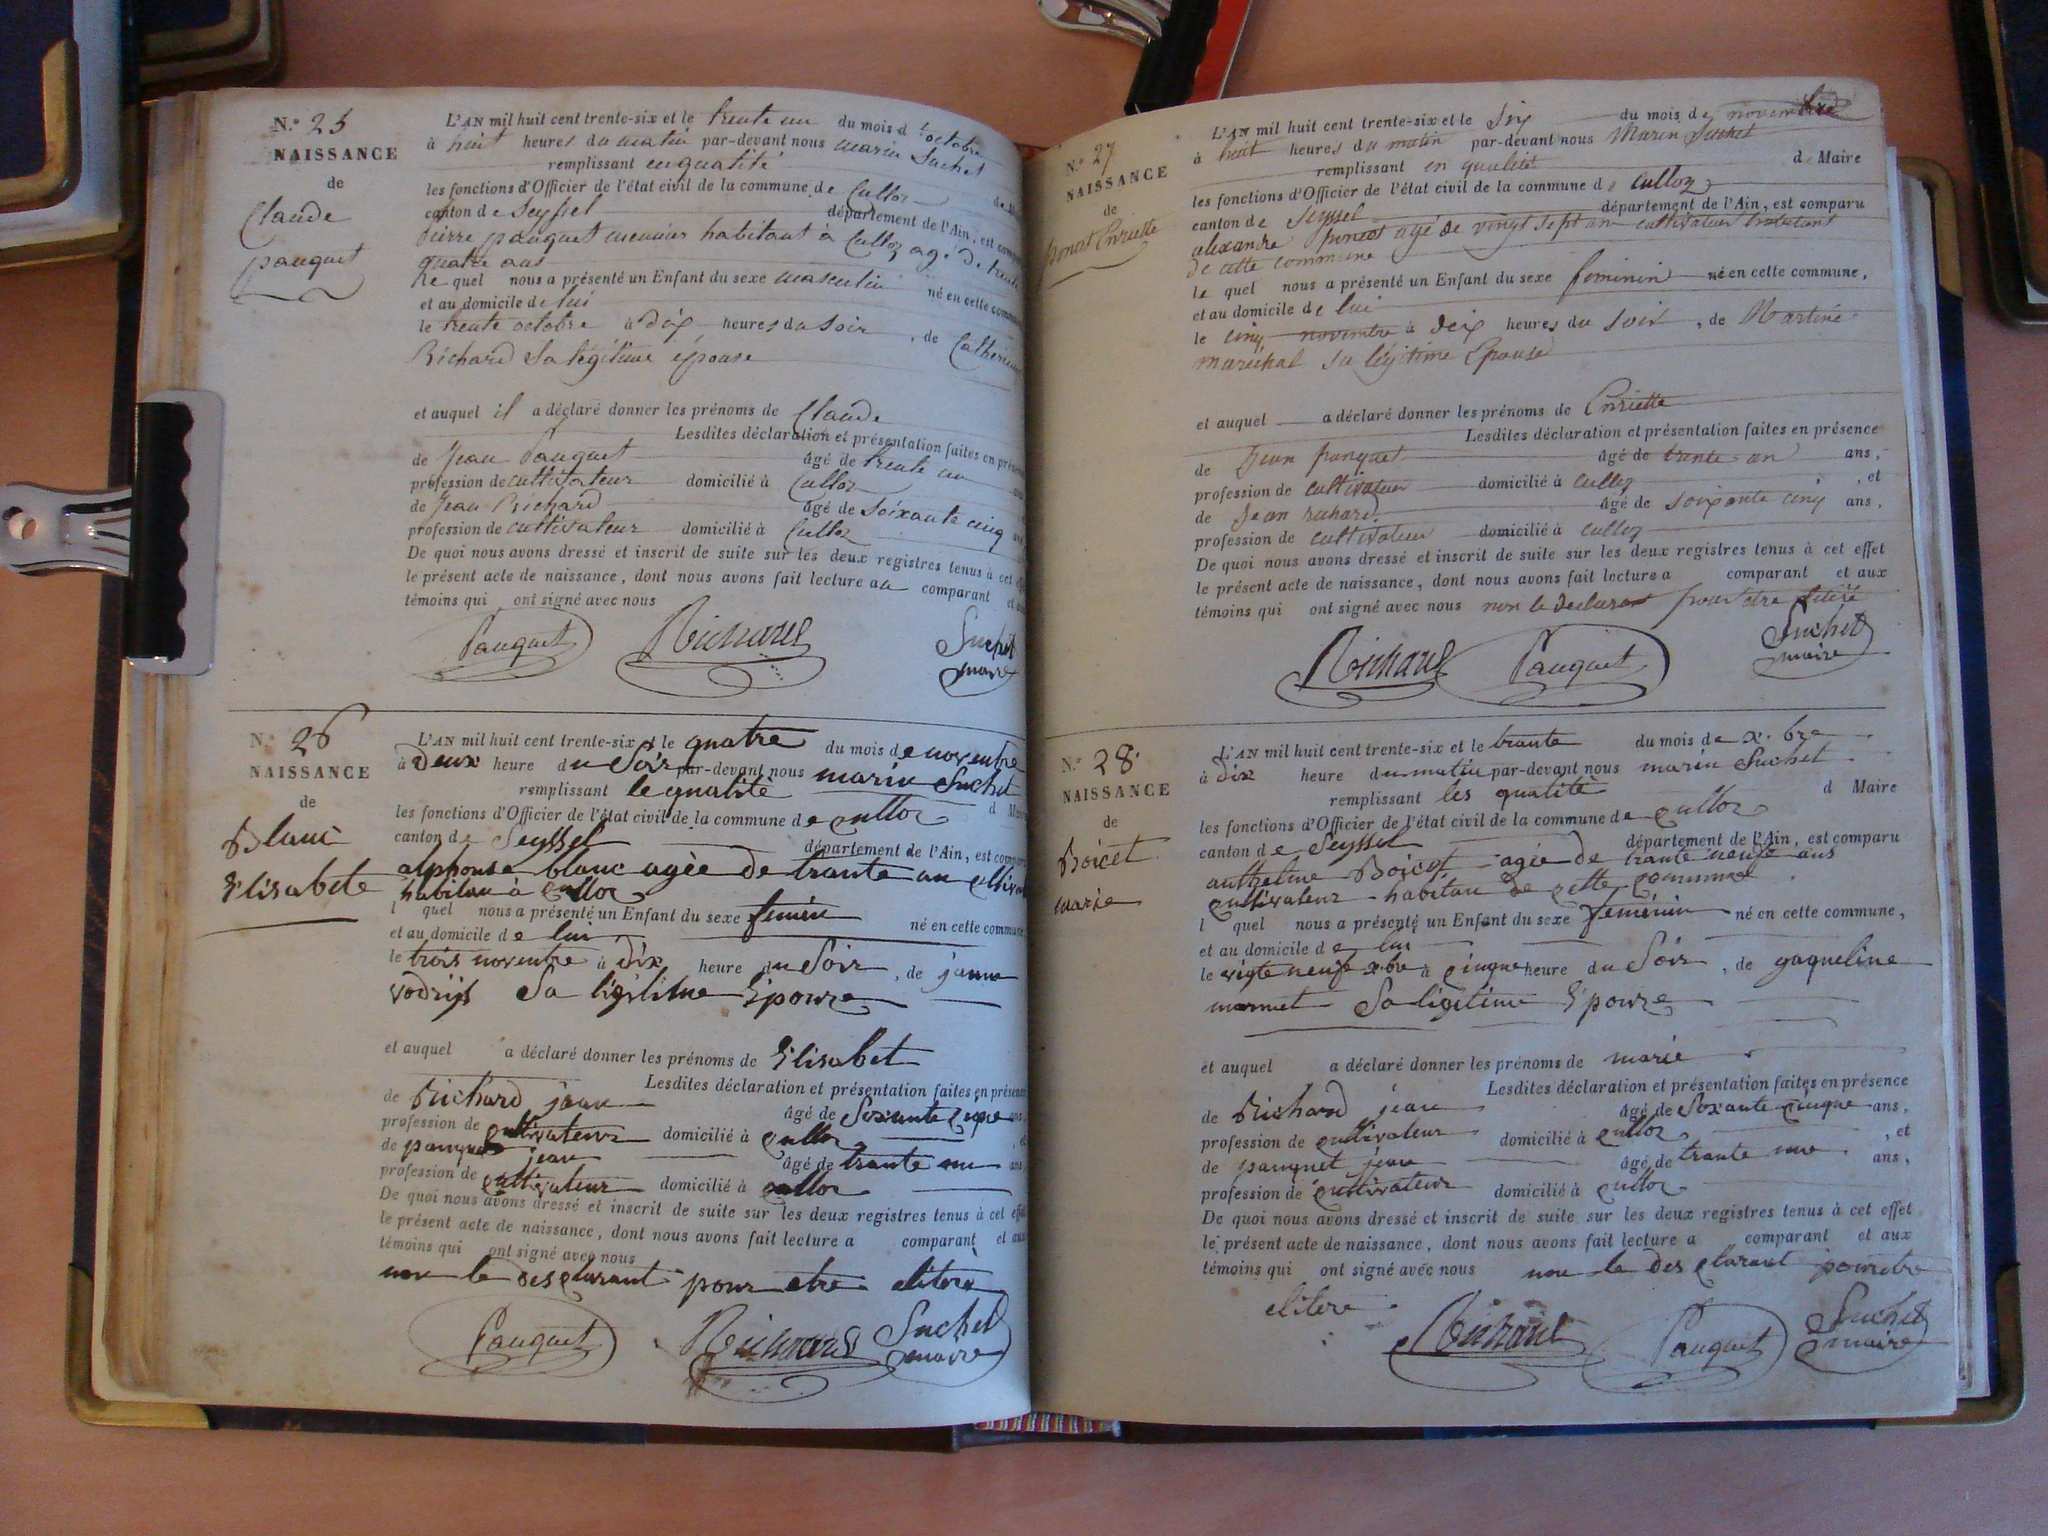 N.° 25
NAISSANCE
de
Claude
pauquet
L'AN mil huit cent trente-six et le trente un du mois d'octobre
à huit heures du matin par-devant nous marin Suchet
remplissant en qualité de
les fonctions d'Officier de l'état civil de la commune de Culloz
canton de Seyssel département de l'Ain, est comparu
Pierre pauquet meunier habitant à Culloz agé de trente
quatre ans
le quel nous a présenté un Enfant du sexe masculin né en cette commune
et au domicile de lui
le trente octobre à dix heures du soir, de Catherine
Richard sa légitime épouse
et auquel il a déclaré donner les prénoms de Claude
Lesdites déclaration et présentation faites en présence
de Jean Pauquet âgé de trente un
profession de cultivateur domicilié à Culloz
de Jean Richard âgé de soixante cinq
profession de cultivateur domicilié à Culloz
De quoi nous avons dressé et inscrit de suite sur les deux registres tenus à cet
le présent acte de naissance, dont nous avons fait lecture au comparant et
témoins qui ont signé avec nous
Pauquet Richard Suchet
maire
N.° 26
NAISSANCE
de
Blanc
Elisabete
L'AN mil huit cent trente-six et le quatre du mois de novembre
à deux heure du Soir par-devant nous marin Suchet
remplissant le qualité d Maire
les fonctions d'Officier de l'état civil de la commune de culloz
canton de Seyssel département de l'Ain, est comparu
alphonse blanc agèe de trante un
habitan a culloz
l quel nous a présenté un Enfant du sexe feminin né en cette commune
et au domicile de lui
le trois novembre à dix heure du Soir, de janne
sa ligitime Epouze
et auquel a déclaré donner les prénoms de Elisabet
Lesdites déclaration et présentation faites en présence
de Richard jean âgé de Soxante cinque ans,
profession de cultivateur domicilié à culloz et
de pauquet jean âgé de trante un ans
profession de cultivateur domicilié à culloz
De quoi nous avons dressé et inscrit de suite sur les deux registres tenus à cet effet
le présent acte de naissance, dont nous avons fait lecture a comparant et aux
témoins qui ont signé avec nous
non le desclarant pour etre elitere
Pauquet Richard Suchet
maire
N.° 27
NAISSANCE
de
poncet Enriette
L'AN mil huit cent trente-six et le Six du mois de novembre
à huit heures du matin par-devant nous Marin Suchet
remplissant en qualité d Maire
les fonctions d'Officier de l'état civil de la commune de culloz
canton de Seyssel département de l'Ain, est comparu
alexandre poncet agé de vingt sept an cultivateur habitant
de cette commune
le quel nous a présenté un Enfant du sexe feminin né en cette commune,
et au domicile de lui
le cinq novembre à deix heures du soir, de Martine
marechal sa légitime Epouse
et auquel a déclaré donner les prénoms de Enriette
Lesdites déclaration et présentation faites en présence
de Jean pauquet âgé de trante-un ans,
profession de cultivateur domicilié à culloz, et
de Jean richard âgé de soixante cinq ans,
profession de cultivateur domicilié à culloz
De quoi nous avons dressé et inscrit de suite sur les deux registres tenus à cet effet
le présent acte de naissance, dont nous avons fait lecture a comparant et aux
témoins qui ont signé avec nous non le declarant pour etre
Richard Pauquet Suchet
maire
N.° 28
NAISSANCE
de
Boicet
marie
L'AN mil huit cent trente-six et le trante du mois de x.bre
à dix heure du matin par-devant nous marin Suchet
remplissant les qualité d Maire
les fonctions d'Officier de l'état civil de la commune de culloz
canton de Seyssel département de l'Ain, est comparu
anthelme Boicet agèe de trante neufe ans
cultivateur habitan de cette commune
l quel nous a présenté un Enfant du sexe feminin né en cette commune,
et au domicile de lui
le vigte neufe xbre à cinque heure du Soir, de gaqueline
marmet Sa ligitime Epouze
et auquel a déclaré donner les prénoms de marie
Lesdites déclaration et présentation faites en présence
de Richard jean âgé de Soxante cinque ans,
profession de cultivateur domicilié à culloz, et
de pauquet jean âgé de trante une ans,
profession de cultivateur domicilié à culloz
De quoi nous avons dressé et inscrit de suite sur les deux registres tenus à cet effet
le présent acte de naissance, dont nous avons fait lecture a comparant et aux
témoins qui ont signé avec nous non le des clarant pouretre
elitere
Richard Pauquet Suchet
maire